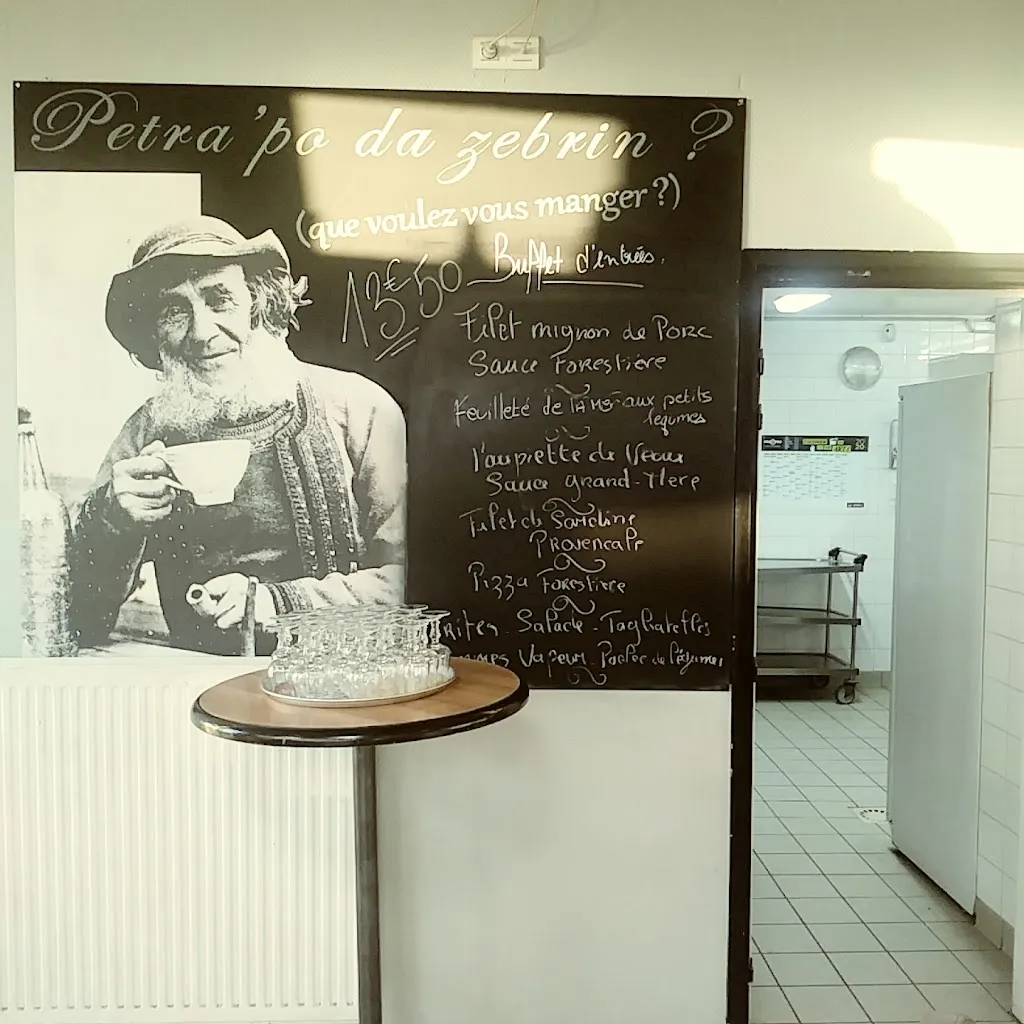 Petra'po da zebrin ?
(que voulez vous manger ?)
13€50 Buffet d'entrées.
Filet mignon de Porc
Sauce Forestière
Feuilleté de aux petits
legumes
de Veau
Sauce Grand-Mere
Filet de Sardine
Provencale
Pizza Forestiere
rites - Salade - Tagliatelles
mes Vapeur - Poelée de légumes